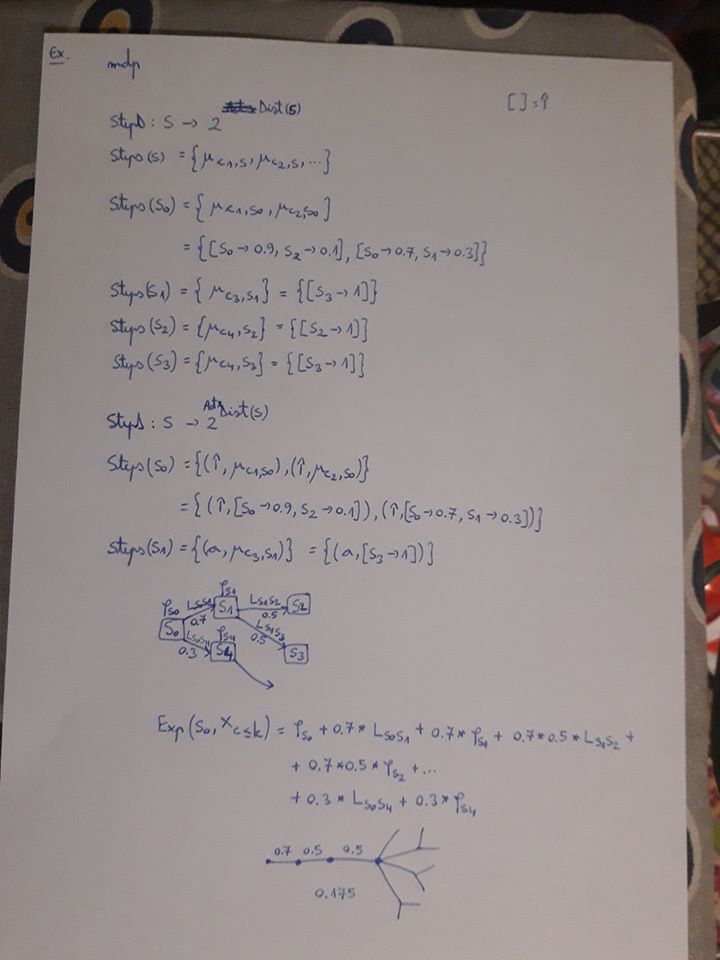 Ex. mdp
[ ] = ↑
Steps : S → 2^Dist(S)
Steps(s) = {μc1,s, μc2,s, ...}
Steps(S0) = {μc1,s0, μc2,s0}
= {[S0 → 0.9, S2 → 0.1], [S0 → 0.7, S1 → 0.3]}
Steps(S1) = {μc3,s1} = {[S3 → 1]}
Steps(S2) = {μc4,s2} = {[S2 → 1]}
Steps(S3) = {μc4,s3} = {[S3 → 1]}
Steps : S → 2^Act×Dist(S)
Steps(S0) = {(↑, μc1,s0), (↑, μc2,s0)}
= {(↑, [S0 → 0.9, S2 → 0.1]), (↑, [S0 → 0.7, S1 → 0.3])}
Steps(S1) = {(a, μc3,s1)} = {(a, [S3 → 1])}
ρS0 LS0S1 ρS1 LS1S2
S0 0.7 S1 0.5 S2
LS0S4 ρS4 LS1S3
0.3 S4 0.5 S3
Exp(S0, XC≤k) = ρS0 + 0.7 * LS0S1 + 0.7 * ρS1 + 0.7 * 0.5 * LS1S2 +
+ 0.7 * 0.5 * ρS2 + ...
+ 0.3 * LS0S4 + 0.3 * ρS4
0.7 0.5 0.5
0.175